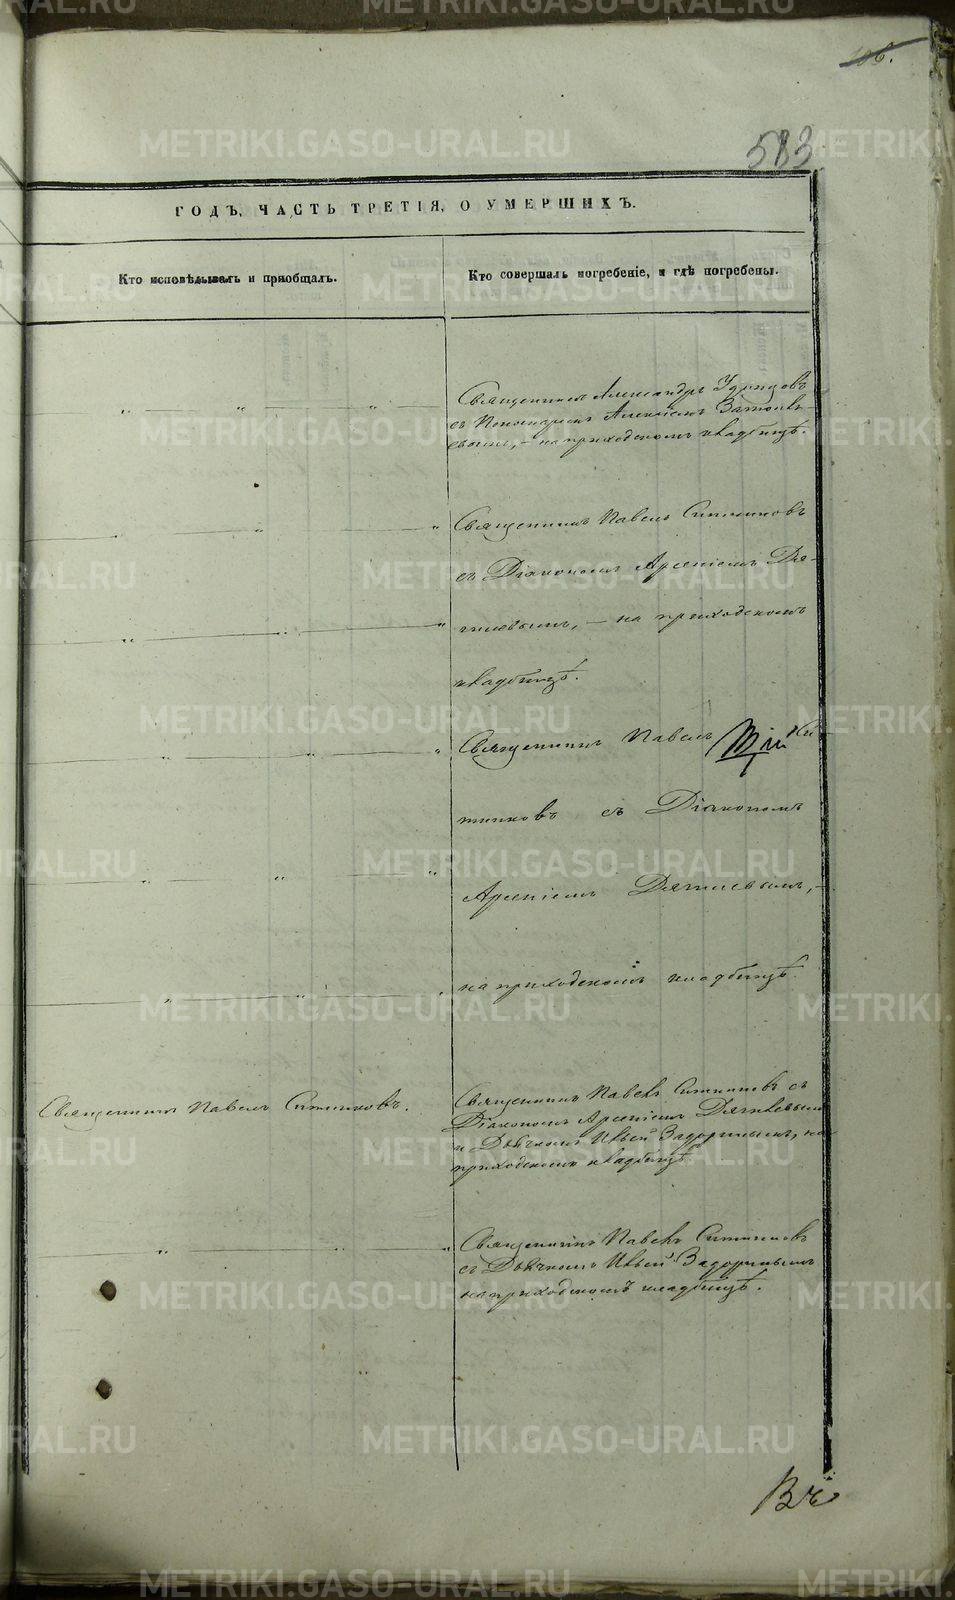 106.
583
ГОДЪ, ЧАСТЬ ТРЕТІЯ, О УМЕРШИХЪ.
Кто исповѣдывалъ и пріобщалъ.
Кто совершалъ погребеніе, и гдѣ погребены.
Священникъ Александръ
съ Пономаремъ Алексѣемъ
на приходскомъ кладбищѣ.
Священникъ Павелъ Ситниковъ
съ Діакономъ Арсеніемъ Дя-
гилевымъ, — на приходскомъ
кладбищѣ.
Священникъ Павелъ Си
тниковъ съ Діакономъ
Арсеніемъ Дягилевымъ, —
на приходскомъ кладбищѣ.
Священникъ Павелъ Ситниковъ.
Священникъ Павелъ Ситниковъ съ
Діакономъ Арсеніемъ Дягилевымъ
и Дьячкомъ Задоринымъ, на
приходскомъ кладбищѣ.
Священникъ Павелъ Ситниковъ
съ Дьячкомъ Задоринымъ
на приходскомъ кладбищѣ.
METRIKI.GASO-URAL.RU